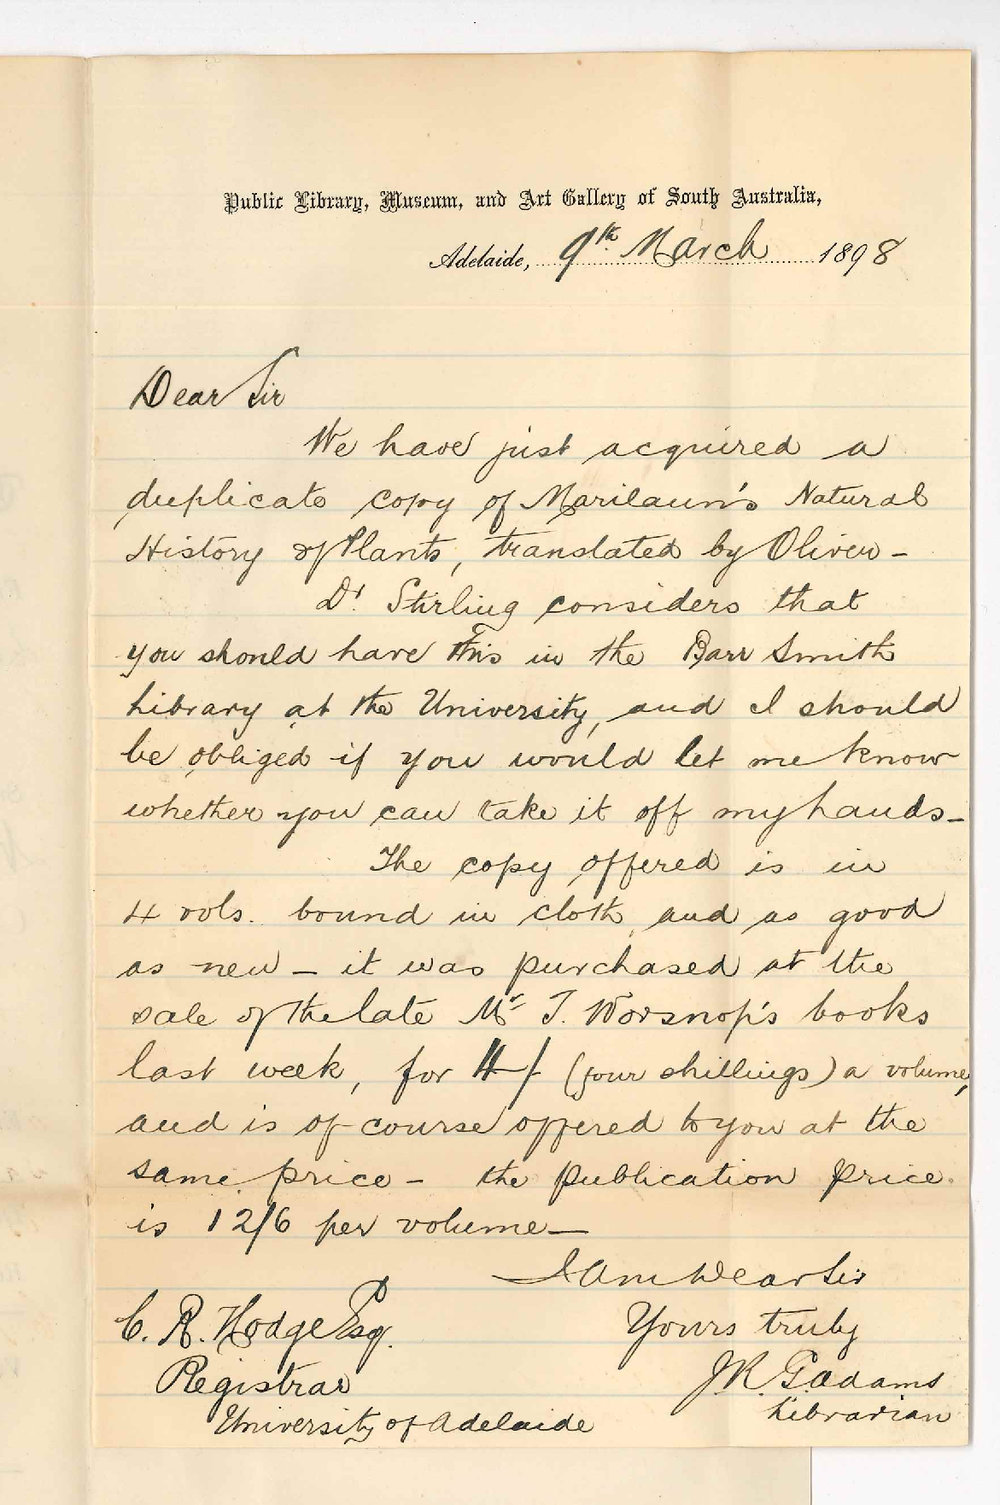 Public Library, Museum, and Art Gallery of South Australia,
Adelaide, 9th March 1898
Dear Sir
We have just acquired a
duplicate copy of Marilaun's Natural
History of Plants, translated by Oliver -
Dr. Stirling considers that
you should have this in the Barr Smith
Library at the University, and I should
be obliged if you would let me know
whether you can take it off my hands -
The copy offered is in
4 vols. bound in cloth, and as good
as new - it was purchased at the
sale of the late Mr T. Worsnop's books
last week, for 4/ (four shillings) a volume,
and is of course offered to you at the
same price - the publication price
is 12/6 per volume -
I am Dear Sir
Yours truly
J R G adams
Librarian
C. R. Hodge Esq.
Registrar
University of Adelaide